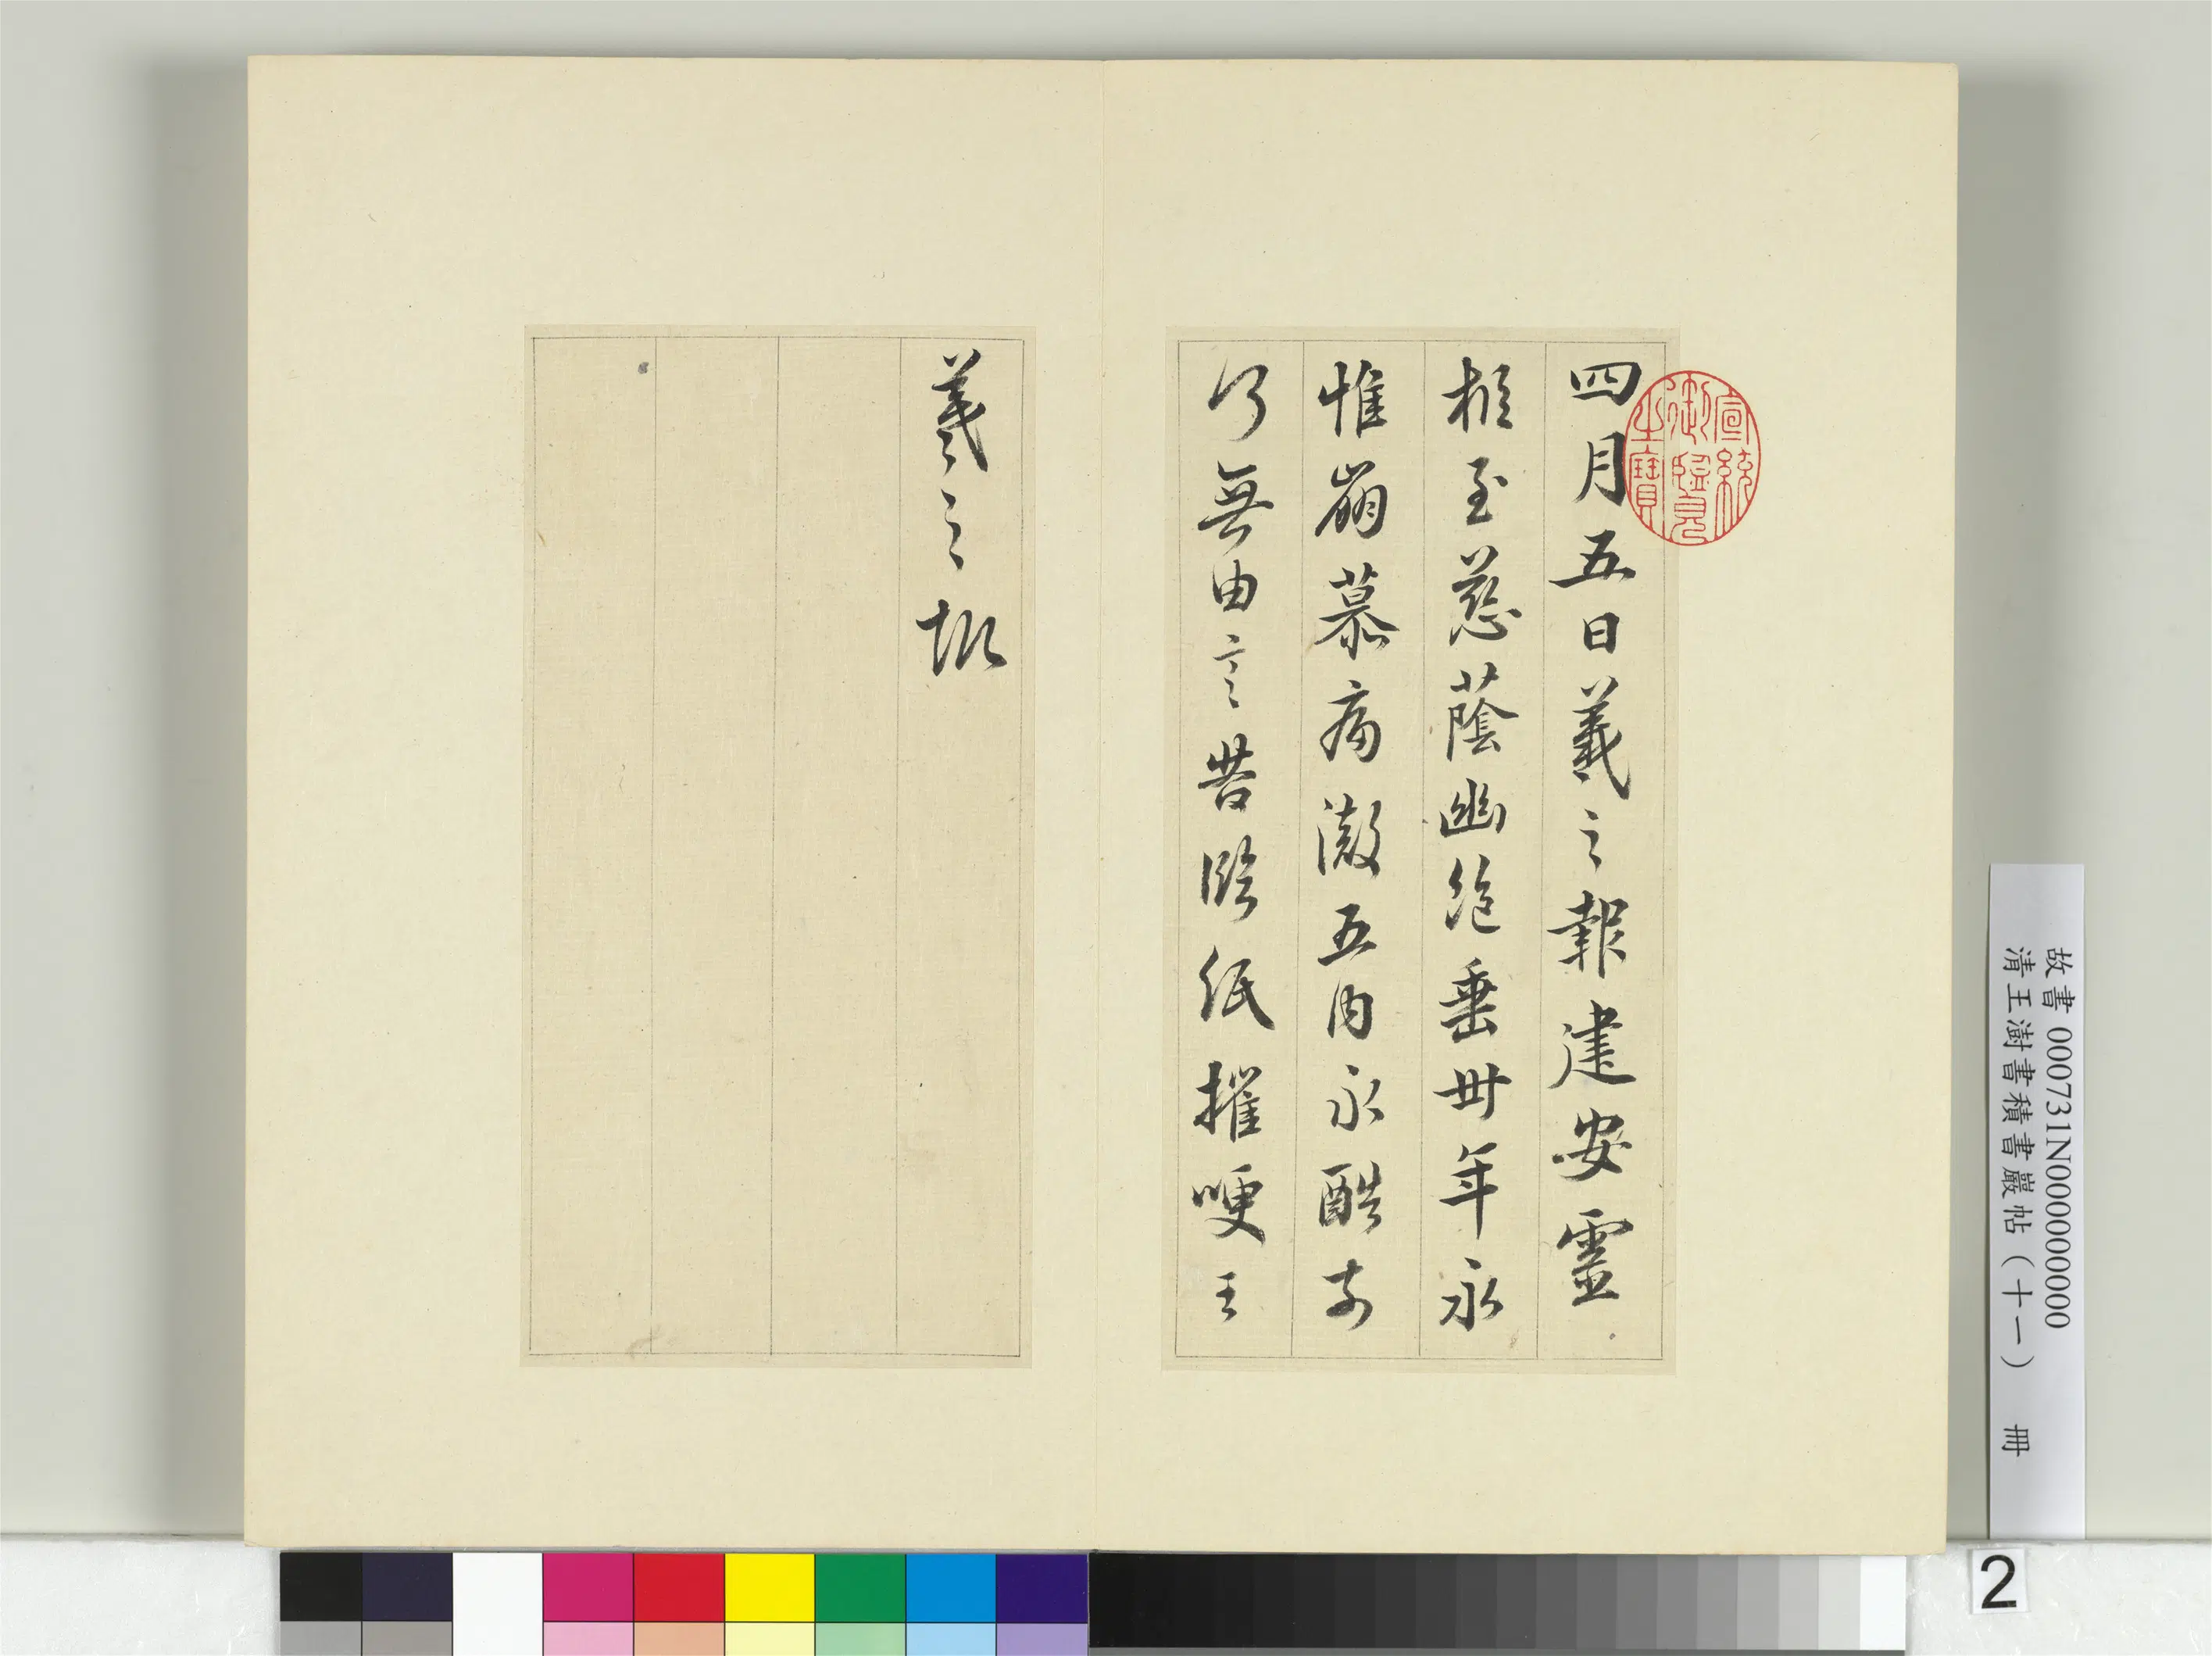 四月五日羲之報建安靈
柩至慈蔭幽絕垂卅年永
惟崩慕痛徹五內永酷奈
何無由言告臨紙摧哽王
羲之報
宣統
御覽
之寶
故書 000731N000000000
清王澍書積書巖帖(十一) 冊
2